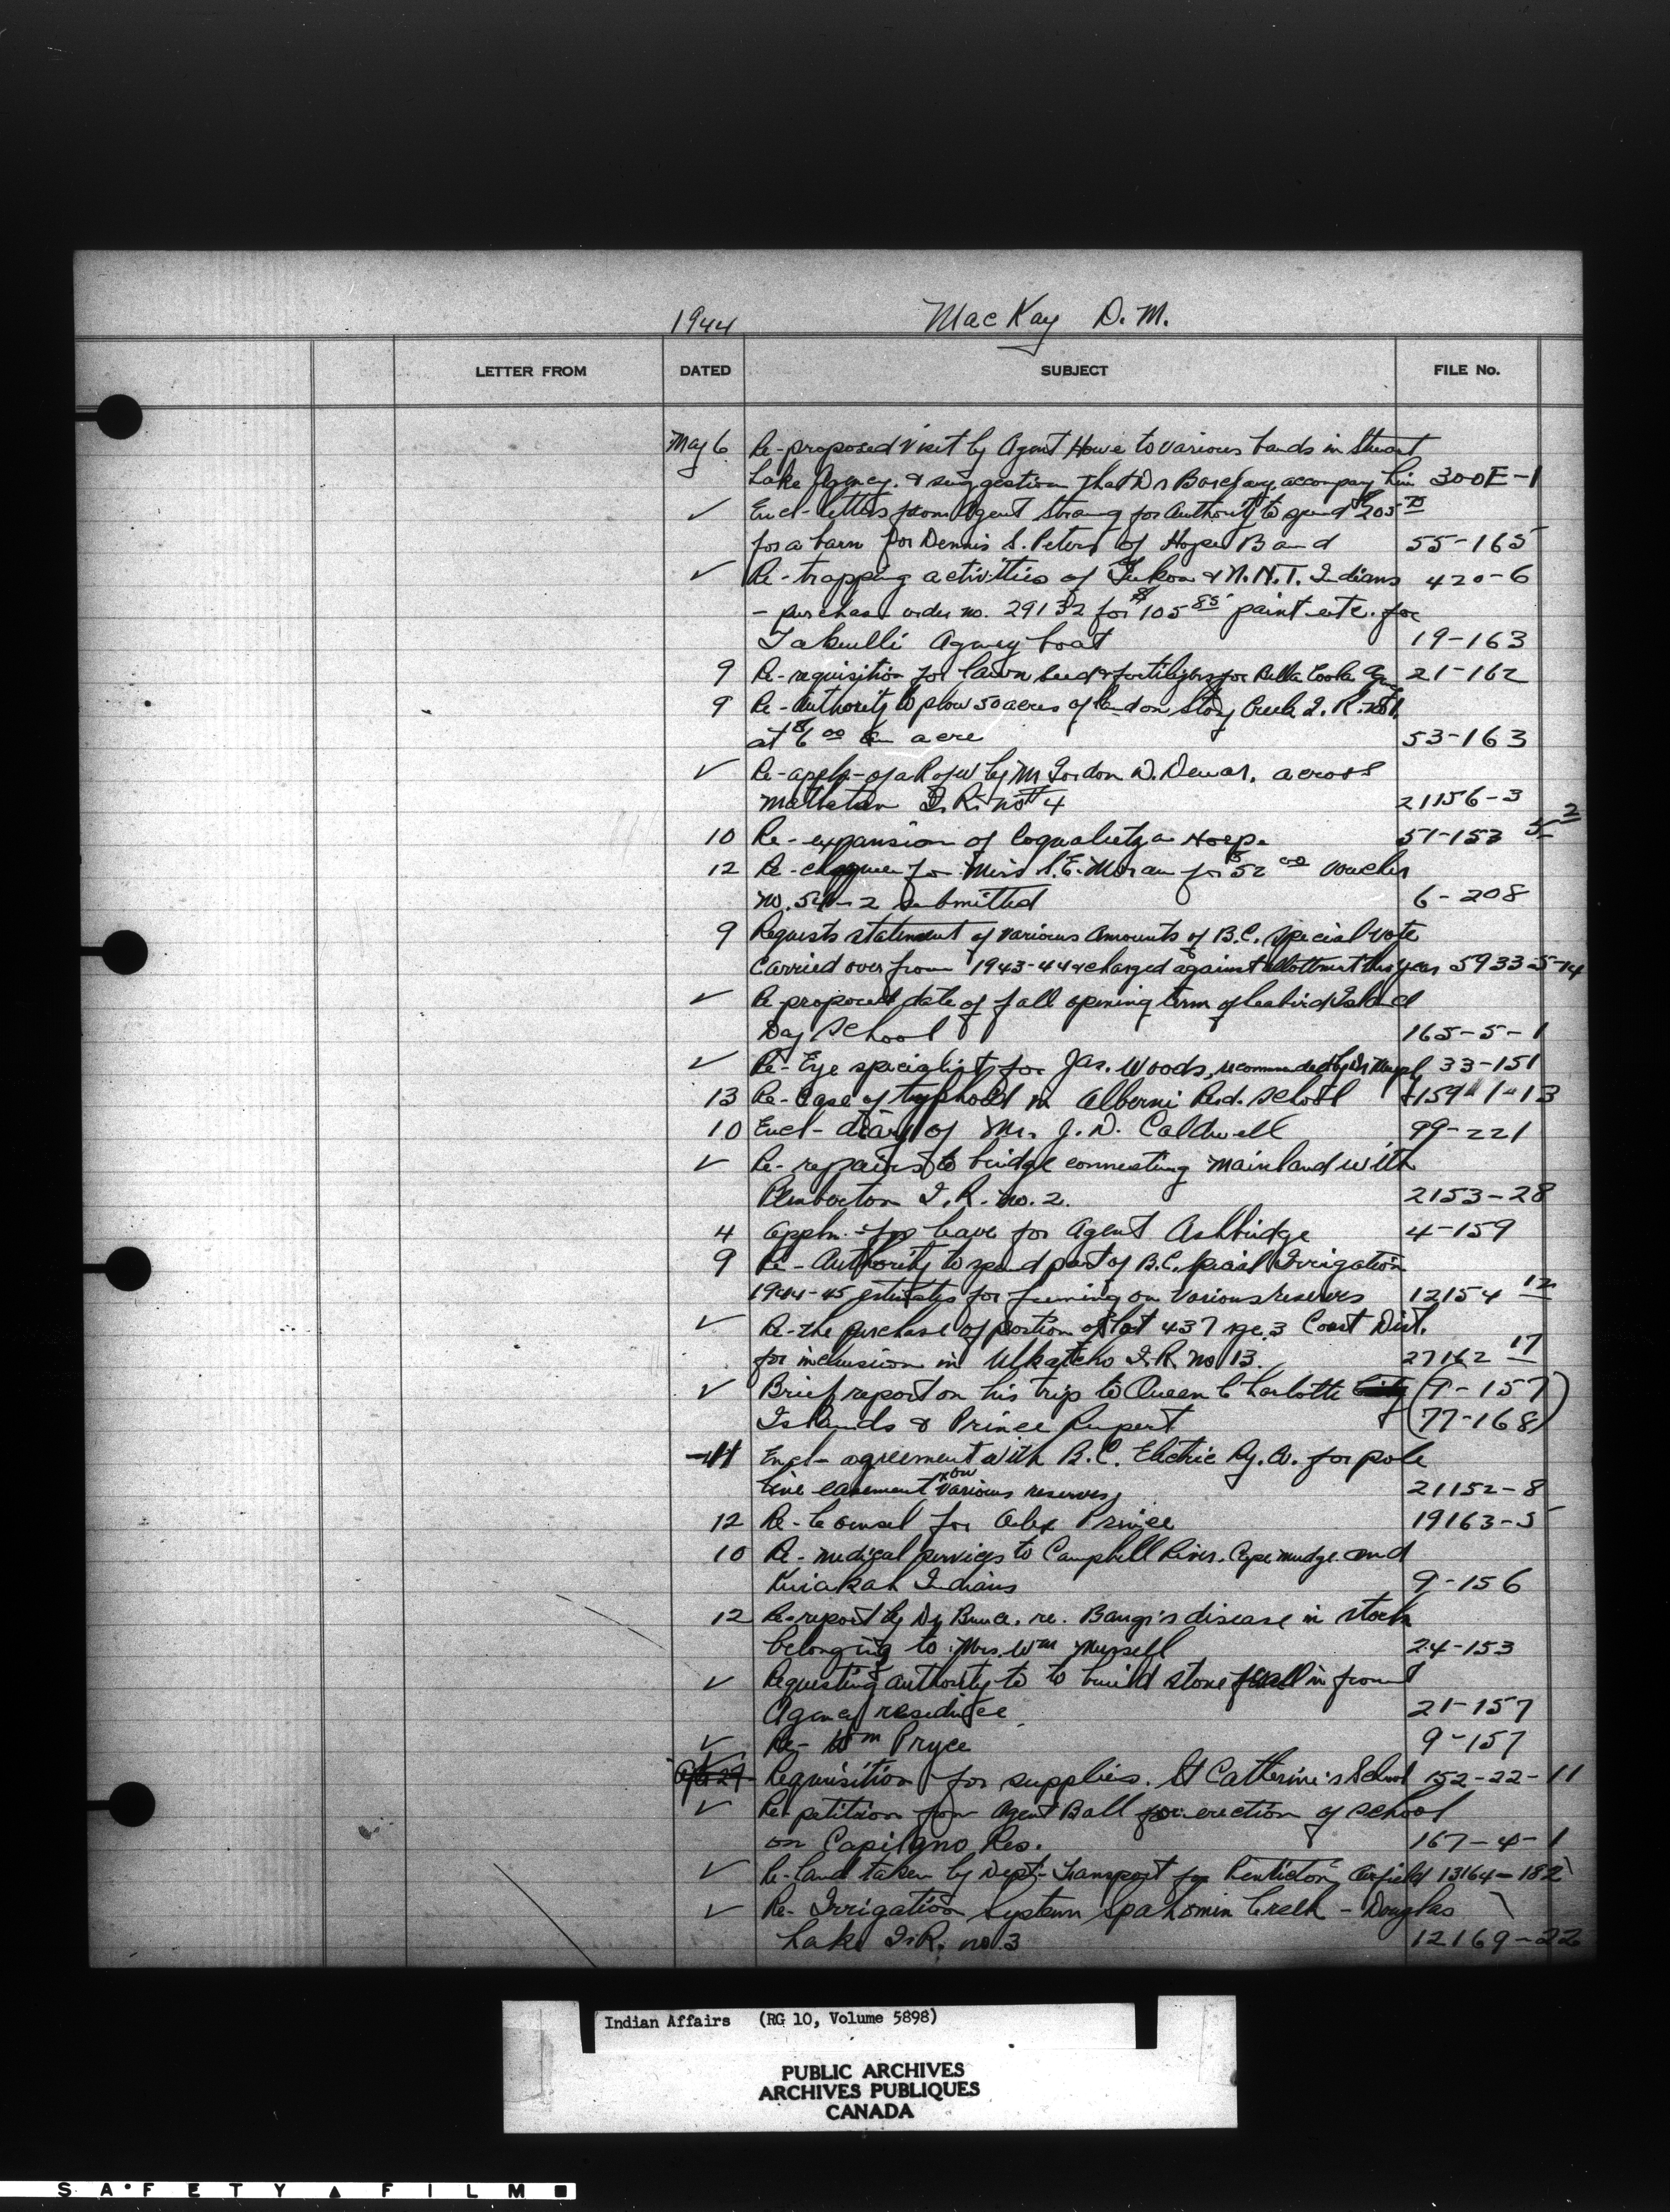 1944 MacKay D. M.
LETTER FROM DATED SUBJECT FILE No.
May 6 Re-proposed visit by Agent Howe to various bands in Stuart
Lake Agency. & suggestion that Dr Barclay accompany him 300E-1
✓ Encl- letters from Agent Strang for authority to spend $205
for a barn for Dennis S. Peters of Hope Band 55-165
✓ Re-trapping activities of Yukon & N.N.T. Indians 420-6
- purchase order no. 29132 for $105 85 paint etc. for
Takulli Agency boat 19-163
9 Re-requisition for lawn seed & fertilizers for Bella Coola Agency 21-162
9 Re-Authority to plow 50 acres of land on Stony Creek I.R. no 1.
at $6 00 an acre 53-163
✓ Re-appln-of a R of W by Mr Gordon D. Dewar, across
I.R. no 4 21156-3
10 Re-expansion of Coqualeetza Hosp. 51-153 5 2
12 Re-cheque for Miss S.E. Moran for $52 00 voucher
no. 54-2 submitted 6-208
9 Requests statement of various amounts of B.C. Special vote
carried over from 1943-44 & charged against allottment this year 5933-5-14
✓ Re proposed date of fall opening term of Seabird Island
Day School 165-5-1
✓ Re-Eye specialist for Jas. Woods, recommended by Dr 33-151
13 Re-Case of typhoid in Alberni Resd. School 159-1-13
10 Encl- diary of Mr. J.D. Caldwell 99-221
✓ Re-repairs to bridge connecting mainland with
Pemberton I.R. no. 2. 2153-28
4 appln. for leave for Agent Ashbridge 4-159
9 Re-Authority to spend part of B.C. Special Irrigation
1944-45 estimates for fluming on various reserves 12154 12
✓ Re-the purchase of portion of lot 437 rge. 3 Coast Dist.
for inclusion in Ulkatcho I.R. no 13. 27162 17
✓ Brief report on his trip to Queen Charlotte (9-157)
Islands & Prince Rupert (77-168)
11 Encl- agreement with B.C. Electric Ry. Co. for pole
line easement on various reserves 21152-8
12 Re-Counsel for Alex Prince 19163-5
10 Re-medical services to Campbell River. Cape Mudge. and
Kwiakah Indians 9-156
12 Re-report by Dr Bruce. re. Bangs disease in stock
belonging to Mrs. Wm Mussell 24-153
✓ Requesting authority to to build stone wall in front
Agency residence 21-157
✓ Re- Wm Pryce 9-157
Apr 27 Requisition for supplies. St Catherine's School 152-22-11
✓ Re-petition from Agent Ball for erection of school
on Capilano Res. 167-4-1
✓ Re-land taken by Dept-Transport for Penticton Airfield 13164-182
✓ Re-Irrigation System Spahomin Creek - Douglas
Lake I.R. no 3 12169-22
Indian Affairs (RG 10, Volume 5898)
PUBLIC ARCHIVES
ARCHIVES PUBLIQUES
CANADA
SAFETY FILM